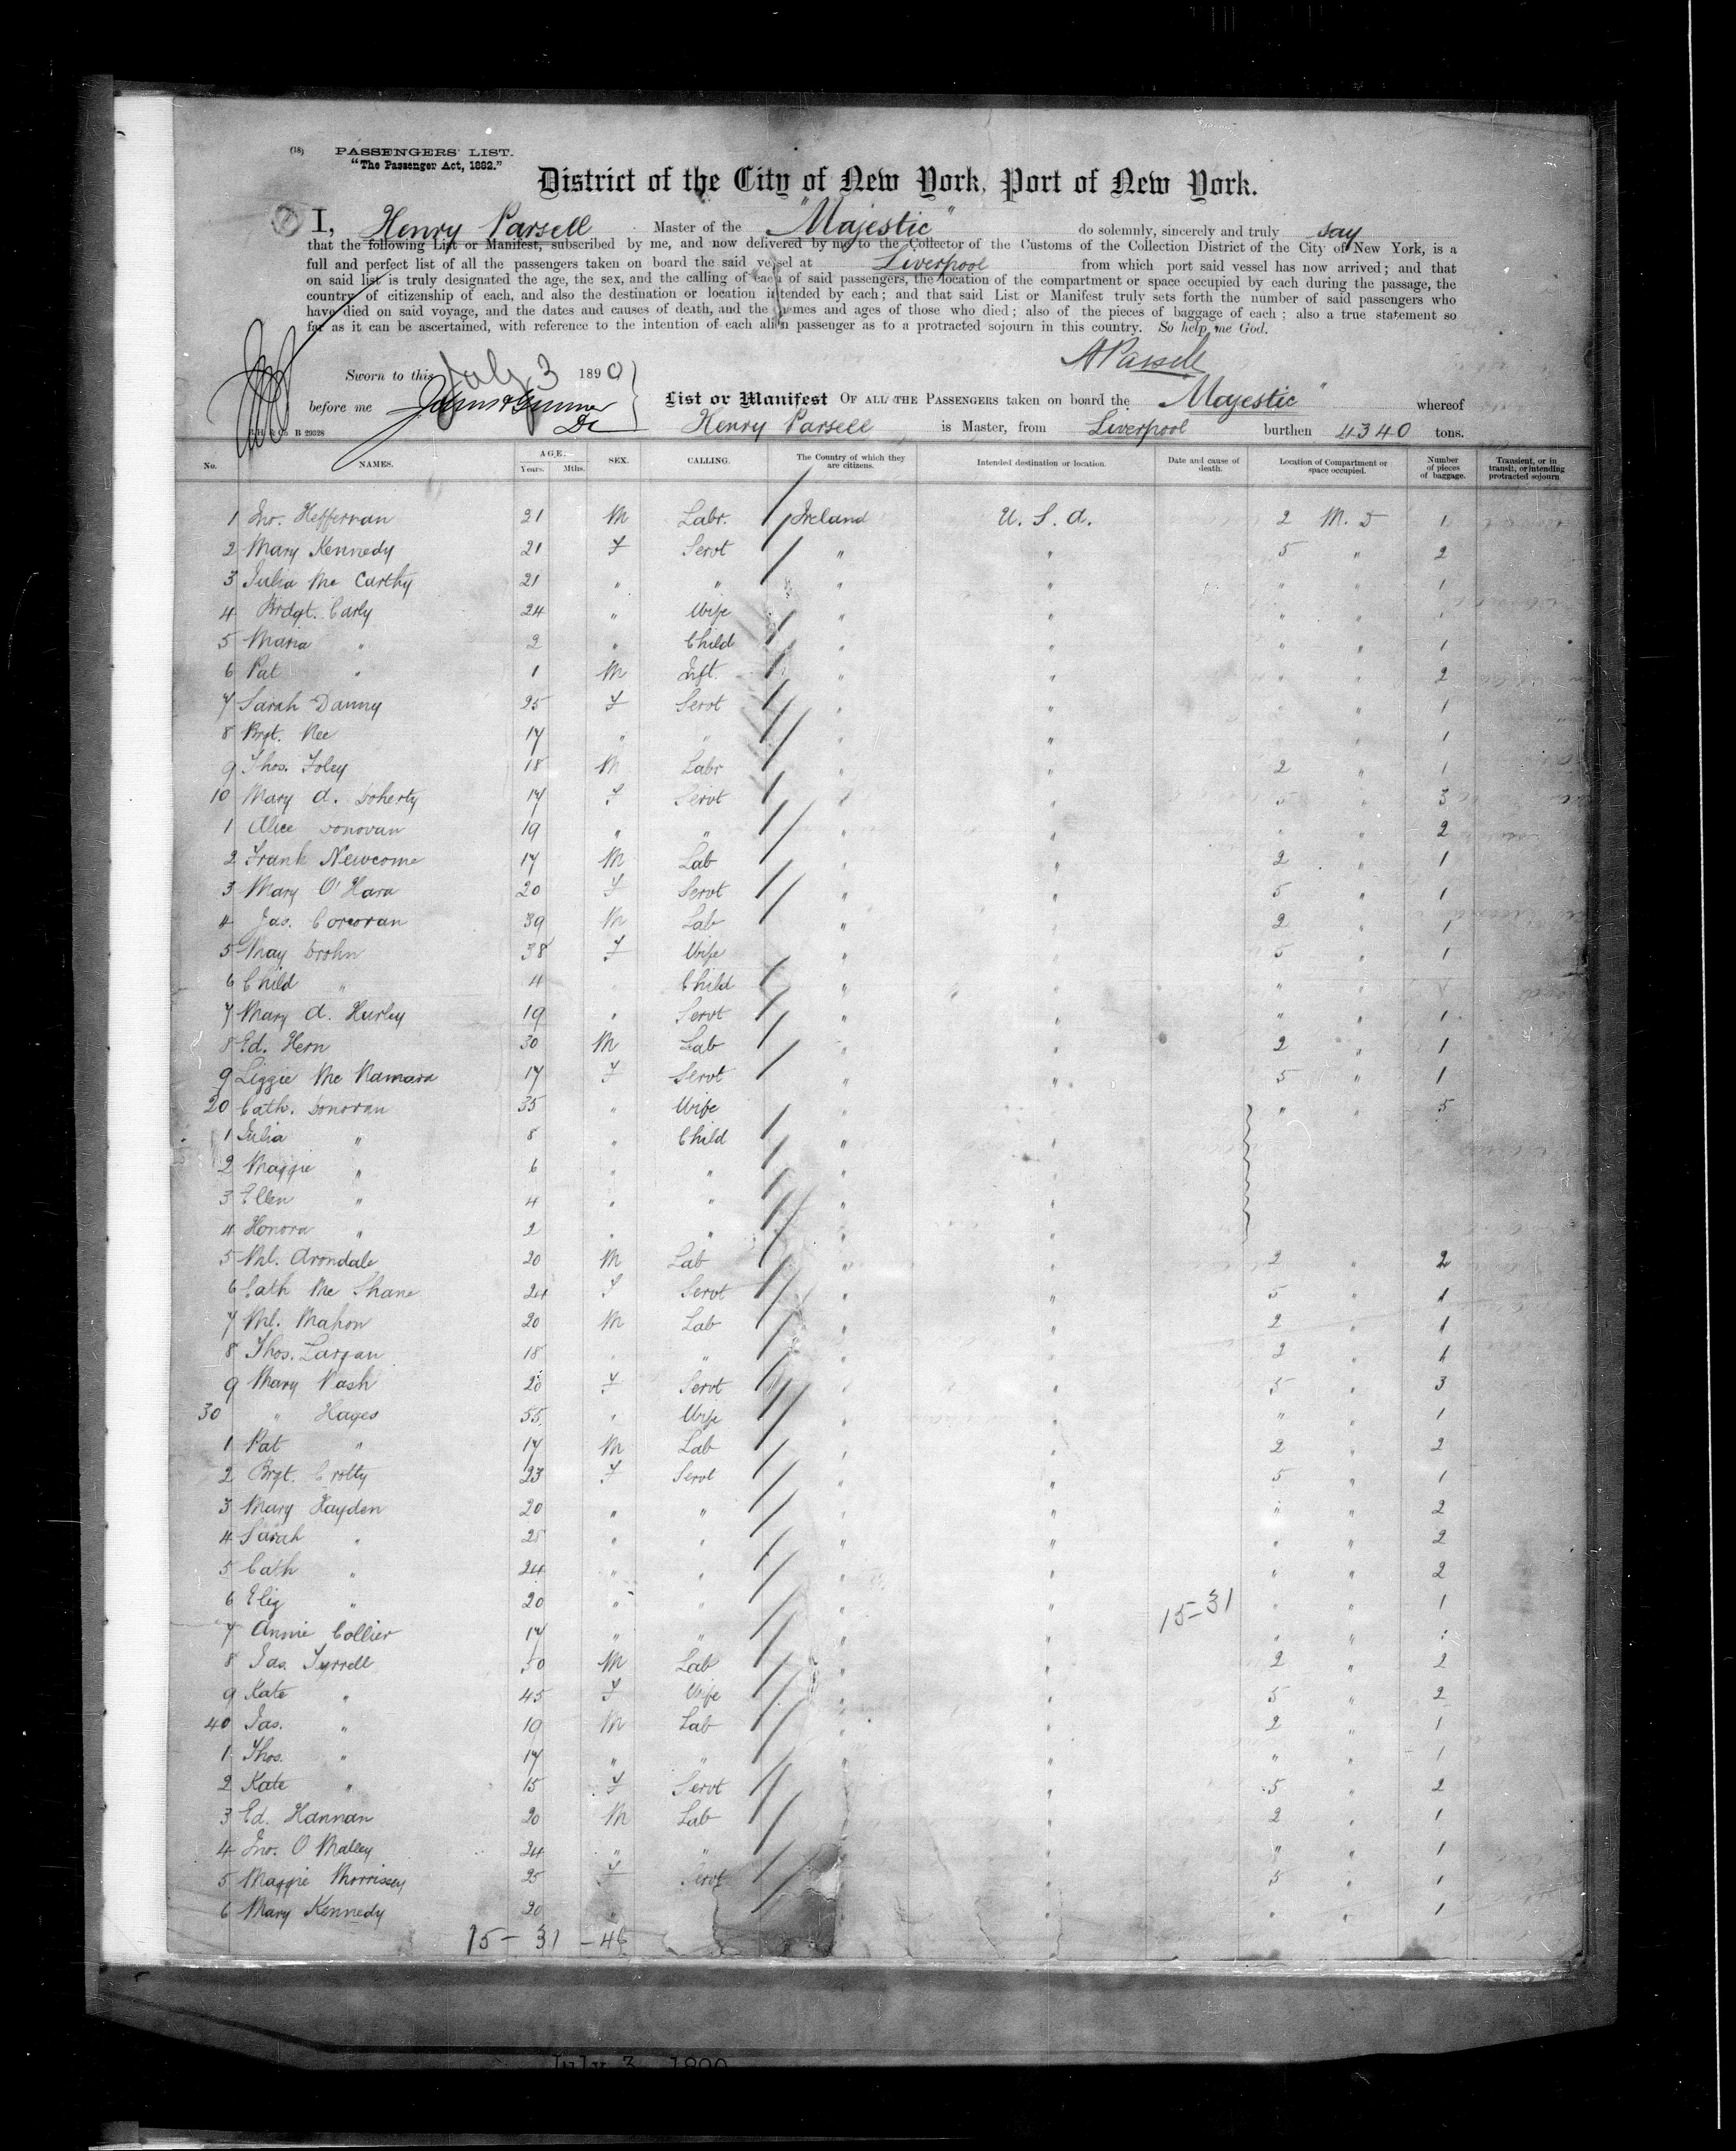 (18) PASSENGERS' LIST.
"The Passenger Act, 1882."
District of the City of New York, Port of New York.
I, Henry Parsell Master of the "Majestic" do solemnly, sincerely and truly say
that the following List or Manifest, subscribed by me, and now delivered by me to the Collector of the Customs of the Collection District of the City of New York, is a
full and perfect list of all the passengers taken on board the said vessel at Liverpool from which port said vessel has now arrived; and that
on said list is truly designated the age, the sex, and the calling of each of said passengers, the location of the compartment or space occupied by each during the passage, the
country of citizenship of each, and also the destination or location intended by each; and that said List or Manifest truly sets forth the number of said passengers who
have died on said voyage, and the dates and causes of death, and the names and ages of those who died; also of the pieces of baggage of each; also a true statement so
far as it can be ascertained, with reference to the intention of each alien passenger as to a protracted sojourn in this country. So help me God.
HParsell
Sworn to this July 3 1890
before me
List or Manifest OF ALL THE PASSENGERS taken on board the Majestic" whereof
Henry Parsell is Master, from Liverpool burthen 4340 tons.
B 29328
No. NAMES. AGE. Years. Mths. SEX. CALLING. The Country of which they are citizens. Intended destination or location. Date and cause of death. Location of Compartment or space occupied. Number of pieces of baggage. Transient, or in transit, or intending protracted sojourn
1 Jno. Heffernan 21 M Labr. Ireland U. S. A. 2 M. D 1
2 Mary Kennedy 21 F Servt " " 5 " 2
3 Julia Mc Carthy 21 " " " " " " 1
4 Brdgt. Carly 24 " Wife " " " "
5 Maria " 2 " Child " " " " 1
6 Pat " 1 M Inft. " " " " 2
7 Sarah Danny 25 F Servt " " " " 1
8 Brgt. Nee 17 " " " " " 1
9 Thos. Foley 18 M Labr " 2 " 1
10 Mary A. Doherty 17 F Servt " " 5 " 3
1 Alice Donovan 19 " " " " " " 2
2 Frank Newcome 17 M Lab " " 2 " 1
3 Mary O'Hara 20 F Servt " " 5 " 1
4 Jas. Corcoran 39 M Lab " " 2 " 1
5 May Drohn 38 F Wife " " 5 " 1
6 Child " 4 " Child " " " "
7 Mary A. Hurley 19 " Servt " " " " 1
8 Ed. Hern 30 M Lab " " 2 " 1
9 Lizzie Mc Namara 17 F Servt " " 5 " 1
20 Cath. Donovan 35 " Wife " " " " 5
1 Julia " 8 " Child " "
2 Maggie " 6 " " " "
3 Ellen " 4 " " " "
4 Honora " 2 " " " "
5 Ml. Arondale 20 M Lab " " 2 " 2
6 Cath Mc Shane 24 F Servt " " 5 " 1
7 Ml. Mahon 20 M Lab " " 2 " 1
8 Thos. Largan 18 " " " " 2 " 1
9 Mary Nash 20 F Servt " " 5 " 3
30 " Hages 55 " Wife " " " " 1
1 Pat " 17 M Lab " " 2 " 2
2 Brgt. Crotty 23 F Servt " " 5 " 1
3 Mary Hayden 20 " " " " " " 2
4 Sarah " 25 " " " " " " 2
5 Cath " 24 " " " " " " 2
6 Eliz " 20 " " " " 15-31 " " 1
7 Annie Collier 17 " " " " " "
8 Jas. Tyrrell 50 M Lab " " 2 " 2
9 Kate " 45 F Wife " " 5 " 2
40 Jas. " 19 M Lab " " 2 " 1
1 Thos. " 17 " " " " " " 1
2 Kate " 15 F Servt " " 5 " 2
3 Ed. Hannan 20 M Lab " " 2 " 1
4 Jno. O Malley 24 " " " " " 1
5 Maggie Morrissey 25 F Servt " 5 " 1
6 Mary Kennedy 20 " " " " 1
15 - 31 - 46
July 3, 1890